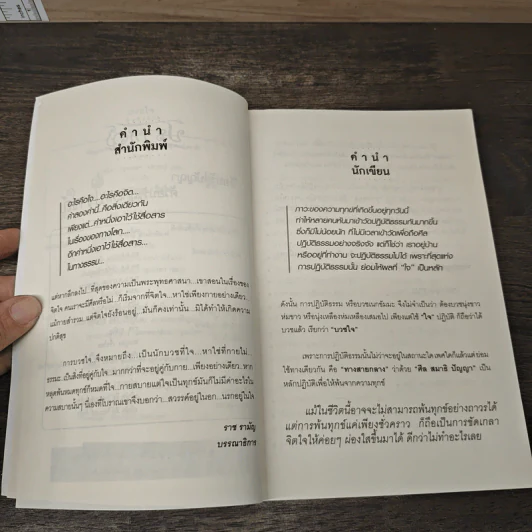 คำนำ
สำนักพิมพ์
อะไรคือใจ...อะไรคือจิต...
คำสองคำนี้..คือสิ่งเดียวกัน
เพียงแต่..คำหนึ่งเอาไว้ใช้สื่อสาร
ในเรื่องของทางโลก....
อีกคำหนึ่งเอาไว้ใช้สื่อสาร...
ในทางธรรม...
แต่หากลึกลงไป...ที่สุดของความเป็นพระพุทธศาสนา...เขาสอนในเรื่องของ
จิตใจ คนเราจะมีดีหรือไม่...ก็เริ่มจากที่จิตใจ...หาใช่เพียงกายอย่างเดียว..
แม้กายสำรวม..แต่จิตใจยังร้อนอยู่..มันก็คงเท่านั้น..มิได้ทำให้เกิดความ
ปกติสุข
การบวชใจ จึงหมายถึง...เป็นนักบวชที่ใจ...หาใช่ที่กายไม่...
ธรรมะ เป็นสิ่งที่อยู่คู่กับใจ...มากกว่าที่จะอยู่คู่กับกาย...เพียงอย่างเดียว..หาก
หลุดพ้นหมดทุกข์ก็หมดที่ใจ...กายสบายแต่ใจเป็นทุกข์มันก็ไม่มีค่าอะไรใน
ความสบายนั้นๆ นี่เองที่โบราณเขาจึงบอกว่า...สวรรค์อยู่ในอก...นรกอยู่ในใจ
ราช รามัญ
บรรณาธิการ
คำนำ
นักเขียน
ภาวะของความทุกข์ที่เกิดขึ้นอยู่ทุกวันนี้
ทำให้หลายคนหันมาเข้าวัดปฏิบัติธรรมกันมากขึ้น
ซึ่งก็มีไม่น้อยนัก ที่ไม่มีเวลาเข้าวัดเพื่อถือศีล
ปฏิบัติธรรมอย่างจริงจัง แต่ก็ใช่ว่า เราอยู่บ้าน
หรืออยู่ที่ทำงาน จะปฏิบัติธรรมไม่ได้ เพราะที่สุดแห่ง
การปฏิบัติธรรมนั้น ย่อมให้ผลที่ "ใจ" เป็นหลัก
ดังนั้น การปฏิบัติธรรม หรือบวชเนกขัมมะ จึงไม่จำเป็นว่า ต้องบวชนุ่งขาว
ห่มขาว หรือนุ่งเหลืองห่มเหลืองเสมอไป เพียงแต่ใช้ "ใจ" ปฏิบัติ ก็ถือว่าได้
บวชแล้ว เรียกว่า "บวชใจ"
เพราะการปฏิบัติธรรมนั้นไม่ว่าจะอยู่ในสถานะใด เพศใดก็แล้วแต่ย่อม
ใช้ทางเดียวกัน คือ "ทางสายกลาง" ว่าด้วย "ศีล สมาธิ ปัญญา" เป็น
หลักปฏิบัติเพื่อให้พ้นจากความทุกข์
แม้ในชีวิตนี้อาจจะไม่สามารถพ้นทุกข์อย่างถาวรได้
แต่การพ้นทุกข์แค่เพียงชั่วคราว ก็ถือเป็นการขัดเกลา
จิตใจให้ค่อยๆ ผ่องใสขึ้นมาได้ ดีกว่าไม่ทำอะไรเลย